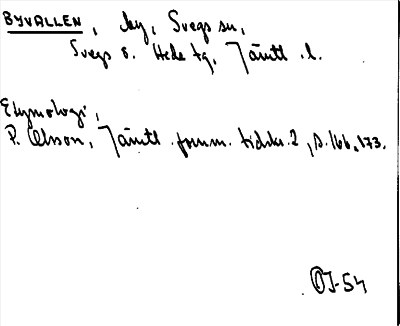 BYVALLEN, by, Svegs sn,
Svegs o. Hede tg, Jämtl. l.
Etymologi,
P. Olsson, Jämtl. fornm. tidskr. 2, s. 166, 173.
OJ-54